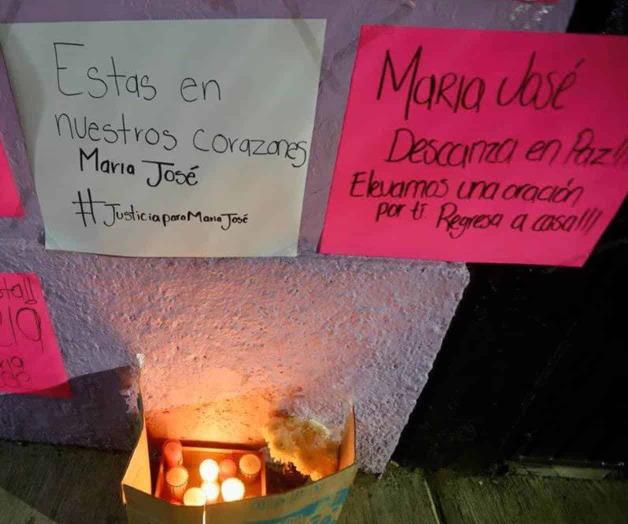 Estas en
nuestros corazones
Maria José
#JusticiaparaMariaJosé
MARIA José
Descanza en Paz!!
Elevamos una oración
por ti Regresa a casa!!!